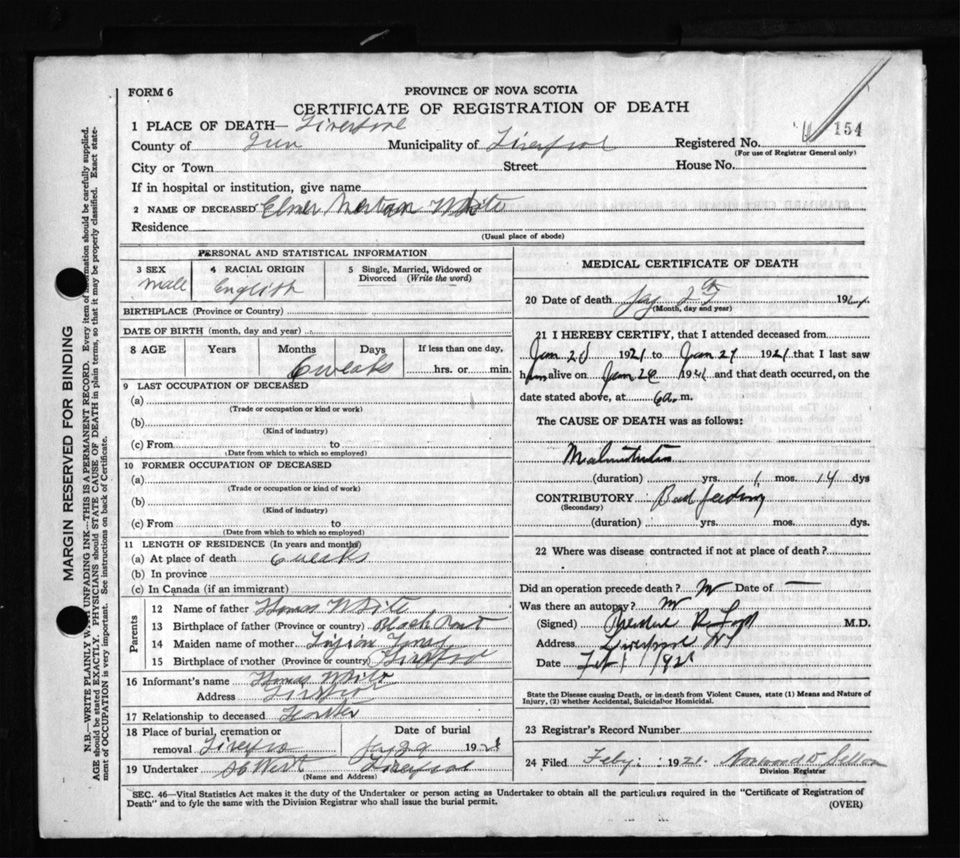 FORM 6
PROVINCE OF NOVA SCOTIA
CERTIFICATE OF REGISTRATION OF DEATH
154
1 PLACE OF DEATH— Liverpool
County of Queens Municipality of Liverpool Registered No.
(For use of Registrar General only)
City or Town Street House No.
If in hospital or institution, give name
2 NAME OF DECEASED Elmer White
Residence
(Usual place of abode)
PERSONAL AND STATISTICAL INFORMATION
3 SEX
male
4 RACIAL ORIGIN
English
5 Single, Married, Widowed or Divorced (Write the word)
BIRTHPLACE (Province or Country)
DATE OF BIRTH (month, day and year)
8 AGE Years Months Days If less than one day,
6 weeks hrs. or min.
9 LAST OCCUPATION OF DECEASED
(a)
(Trade or occupation or kind or work)
(b)
(Kind of industry)
(c) From to
(Date from which to which so employed)
10 FORMER OCCUPATION OF DECEASED
(a)
(Trade or occupation or kind of work)
(b)
(Kind of industry)
(c) From to
(Date from which to which so employed)
11 LENGTH OF RESIDENCE (In years and months)
(a) At place of death 6 weeks
(b) In province
(c) In Canada (if an immigrant)
Parents
12 Name of father Thomas White
13 Birthplace of father (Province or country) Black Point
14 Maiden name of mother
15 Birthplace of mother (Province or country) Liverpool
16 Informant's name Thomas White
Address Liverpool
17 Relationship to deceased Father
18 Place of burial, cremation or Date of burial
removal Liverpool 192
19 Undertaker Liverpool
(Name and Address)
MEDICAL CERTIFICATE OF DEATH
20 Date of death 192
(Month, day and year)
21 I HEREBY CERTIFY, that I attended deceased from
Jan 1921 to Jan 1921 that I last saw
him alive on Jan and that death occurred, on the
date stated above, at 6 a.m.
The CAUSE OF DEATH was as follows:
Malnutrition
(duration) yrs. 1 mos. 14 dys
CONTRIBUTORY Bad feeding
(Secondary)
(duration) yrs. mos. dys.
22 Where was disease contracted if not at place of death?
Did an operation precede death? No Date of —
Was there an autopsy? No
(Signed) M.D.
Address Liverpool NS
Date Feb 1 1921
State the Disease causing Death, or in death from Violent Causes, state (1) Means and Nature of
Injury, (2) whether Accidental, Suicidal or Homicidal.
23 Registrar's Record Number
24 Filed Feby 1921
Division Registrar
SEC. 46—Vital Statistics Act makes it the duty of the Undertaker or person acting as Undertaker to obtain all the particulars required in the "Certificate of Registration of
Death" and to fyle the same with the Division Registrar who shall issue the burial permit.
(OVER)
MARGIN RESERVED FOR BINDING
N.B.—WRITE PLAINLY WITH UNFADING INK—THIS IS A PERMANENT RECORD. Every item of information should be carefully supplied.
AGE should be stated EXACTLY. PHYSICIANS should STATE CAUSE OF DEATH in plain terms, so that it may be properly classified. Exact state-
ment of OCCUPATION is very important. See instructions on back of Certificate.